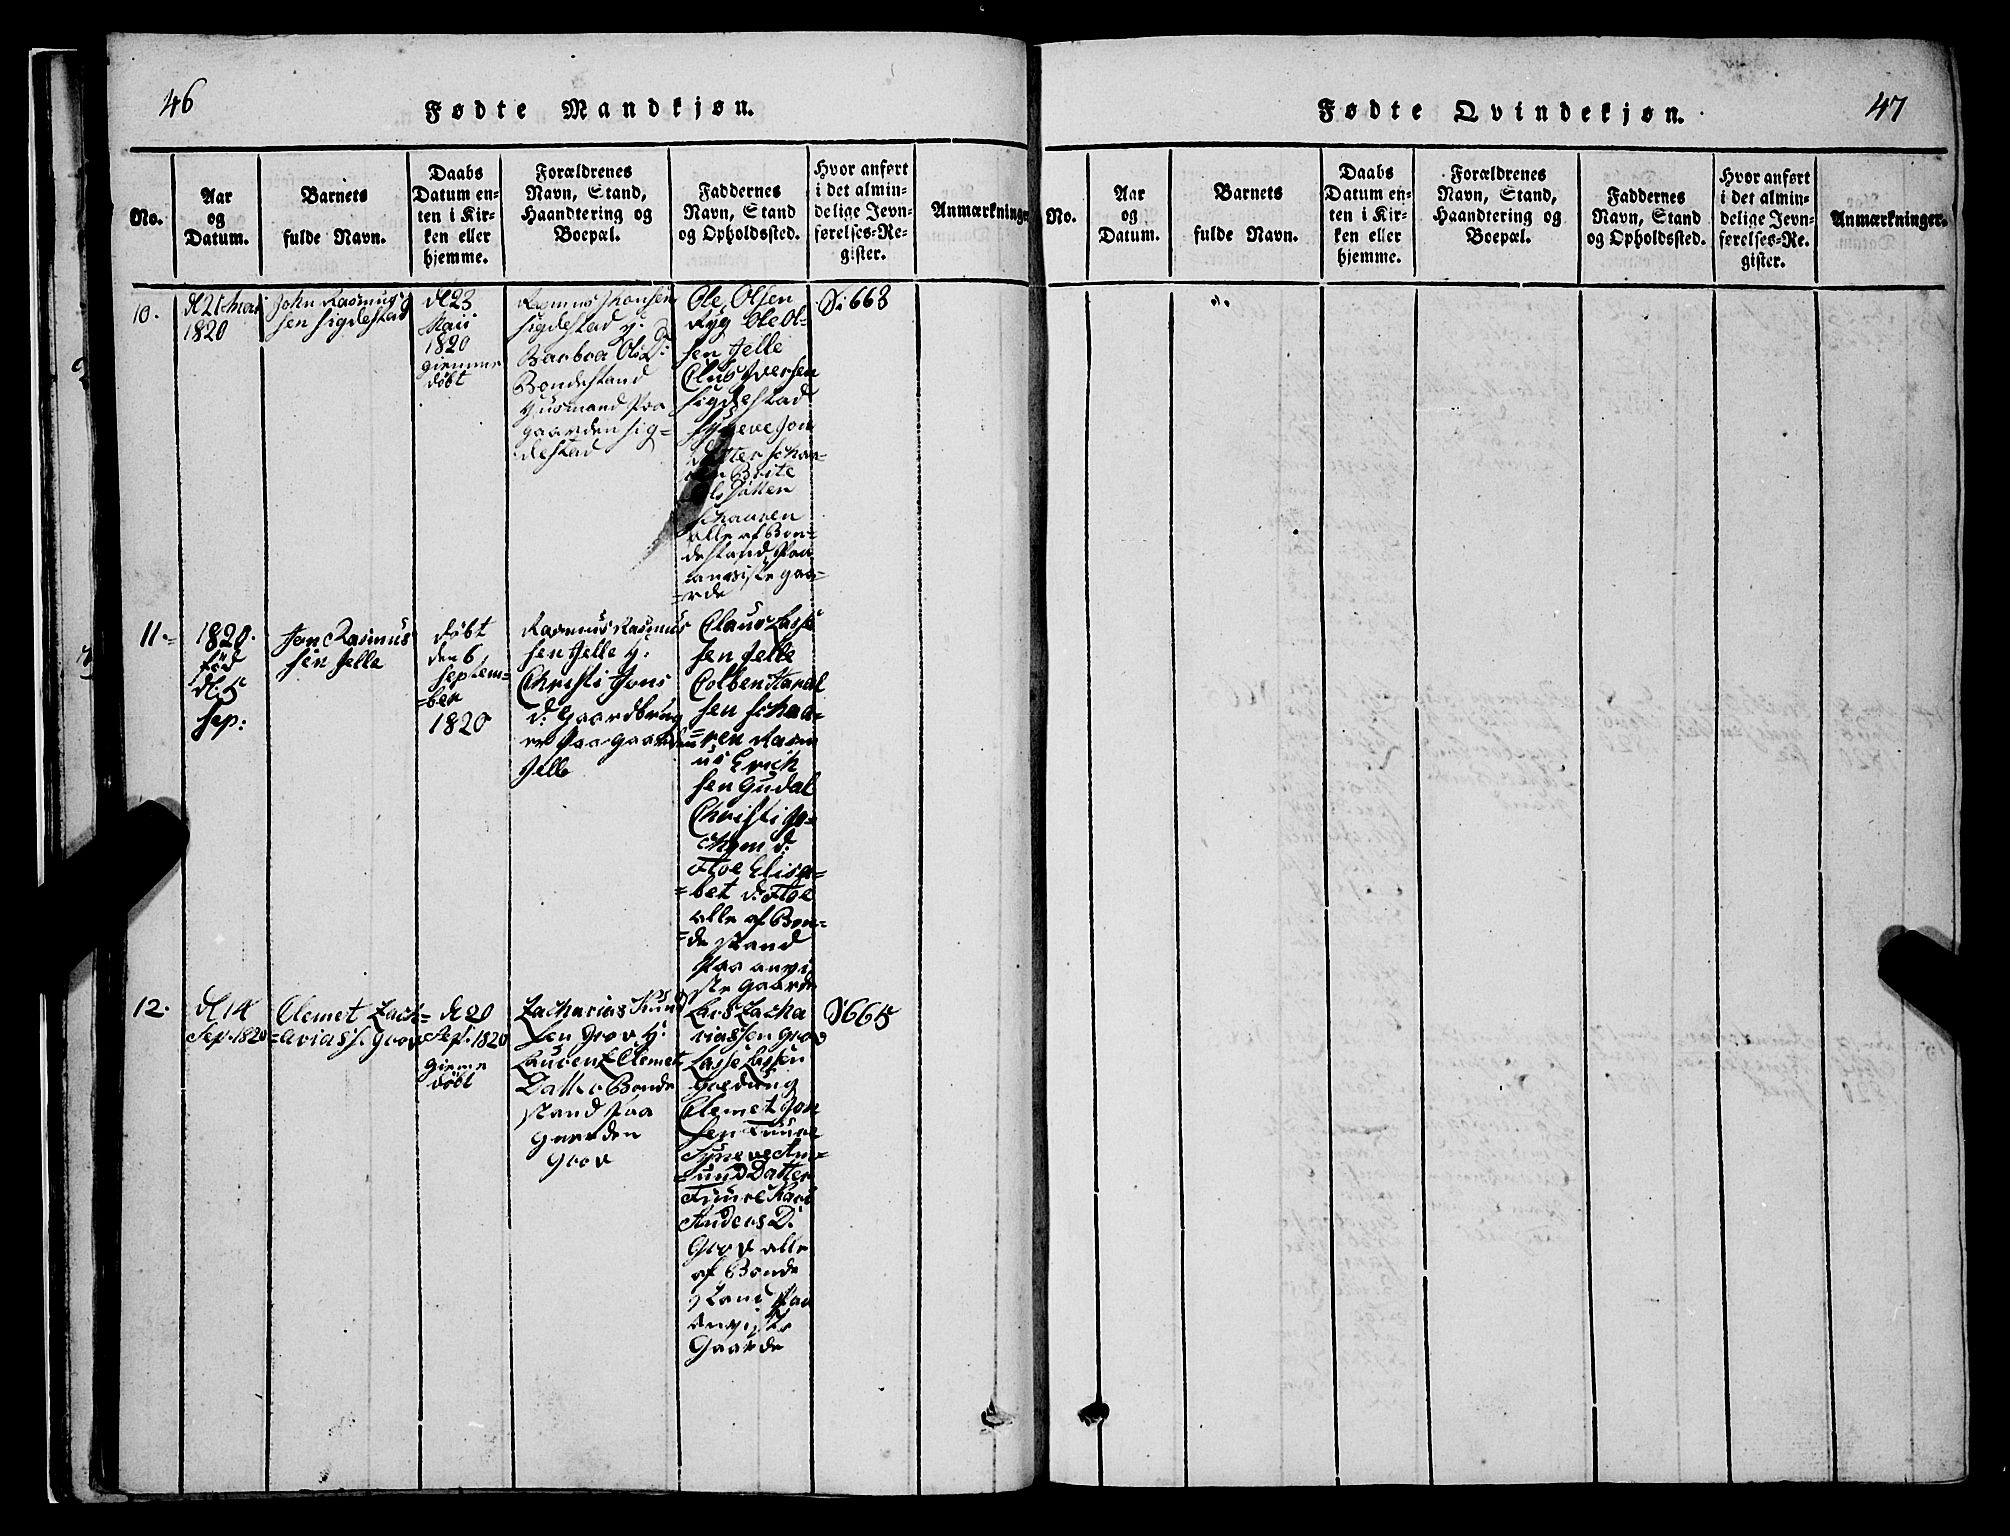 46
Fødte Mandkjøn.
No.
Aar
og
Datum.
Barnets
fulde Navn.
Daabs
Datum en-
ten i Kir-
ken eller
hjemme.
Forældrenes
Navn, Stand,
Haandtering og
Boepæl.
Faddernes
Navn, Stand
og Opholdssted.
Hvor anført
i det almin-
delige Jevn-
førelses-Re-
gister.
Anmærkninger
10.
d 21 Mai
1820
John Rasmus
sen Sigdestad
d 23
Maii
1820
giemme
døbt
Rasmus Jhonsen
Sigdestad H:
Barbra Ols D:
Bondestand
Husmand paa
gaarden Sig=
destad
Ole Olsen
Ryg Ole Ol-
sen Jelle
Claus Iversen
Sigdestad
Syneve Jon
Datter Schaa-
Brite
Ols Datter
Schaaren
alle af Bon=
destand paa
anviste gaa=
=rde
S: 663
11.
1820.
fød
d: 5
Sep:
Jon Rasmus
sen Jelle
døbt
den 6
Septem=
=ber
1820
Rasmus Rasmus
sen Jelle H:
Christi Jons
d: Gaardbrug
er paa Gaarden
Jelle
Claus Lasse
sen Jelle
Colben Haral
sen Schaa=
=ren Rasm
us Erich
sen Gudal
Christi Jo=
chym d:
Floe Elisa=
=bet d: Floe
alle af Bon=
=de stand
paa anvi
ste gaarde
12.
d 14
Sep. 1820
Clemet Zach=
=arias s. Grov
d 20
Sep. 1820
gieme
døbt
Zacharias Knud
sen Grov H:
Laurenz Clemet
Datter Bonde
stand paa
Gaarden
Grov
Lars Zacha
riassen Grov
Lasse Lassen
Clemet Jon
sen Fuure
Syneve Am=
=und Datter
Fuure Kari
Anders D:
Grov alle
af Bonde
stand paa
anviste
Gaarde
S 665
Fødte Qvindekjøn.
47
No.
Aar
og
Datum.
Barnets
fulde Navn.
Daabs
Datum en-
ten i Kir-
ken eller
hjemme.
Forældrenes
Navn, Stand,
Haandtering og
Boepæl.
Faddernes
Navn, Stand
og Opholdssted.
Hvor anført
i det almin-
delige Jevn-
førelses-Re-
gister.
Anmærkninger.